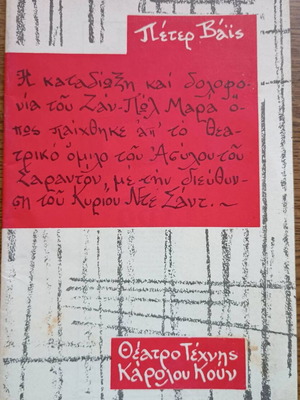 Πέτερ Βάϊς
Ἡ καταδίωξη καί δολοφο-
νία τοῦ Ζάν-Πῶλ Μαρά ὅ-
πως παίχθηκε ἀπ' τό θεα-
τρικό ὅμιλο τοῦ Ἀσύλου τοῦ
Σαραντόν, μέ τήν διεύθυν-
ση τοῦ Κυρίου Ντέ Σάντ.~
Θέατρο Τέχνης
Κάρολου Κούν